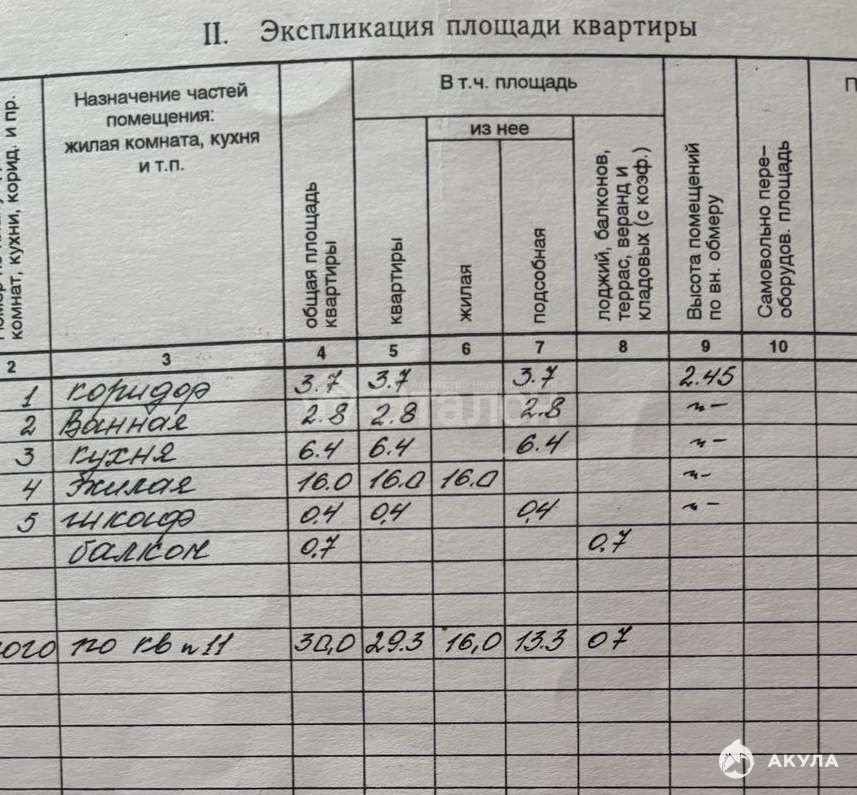 II. Экспликация площади квартиры
комнат, кухни, корид. и пр.
Назначение частей
помещения:
жилая комната, кухня
и т.п.
общая площадь
квартиры
В т.ч. площадь
квартиры
из нее
жилая
подсобная
лоджий, балконов,
террас, веранд и
кладовых (с коэф.)
Высота помещений
по вн. обмеру
Самовольно пере-
оборудов. площадь
П
2 3 4 5 6 7 8 9 10
1 коридор 3.7 3.7 3.7 2.45
2 Ванная 2.8 2.8 2.8 "-
3 кухня 6.4 6.4 6.4 "-
4 Жилая 16.0 16.0 16.0 "-
5 шкаф 0,4 0,4 0,4 "-
балкон 0,7 0.7
ого по кв п 11 30,0 29.3 16,0 13.3 07
Эталон
АКУЛА